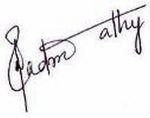 Padm athy